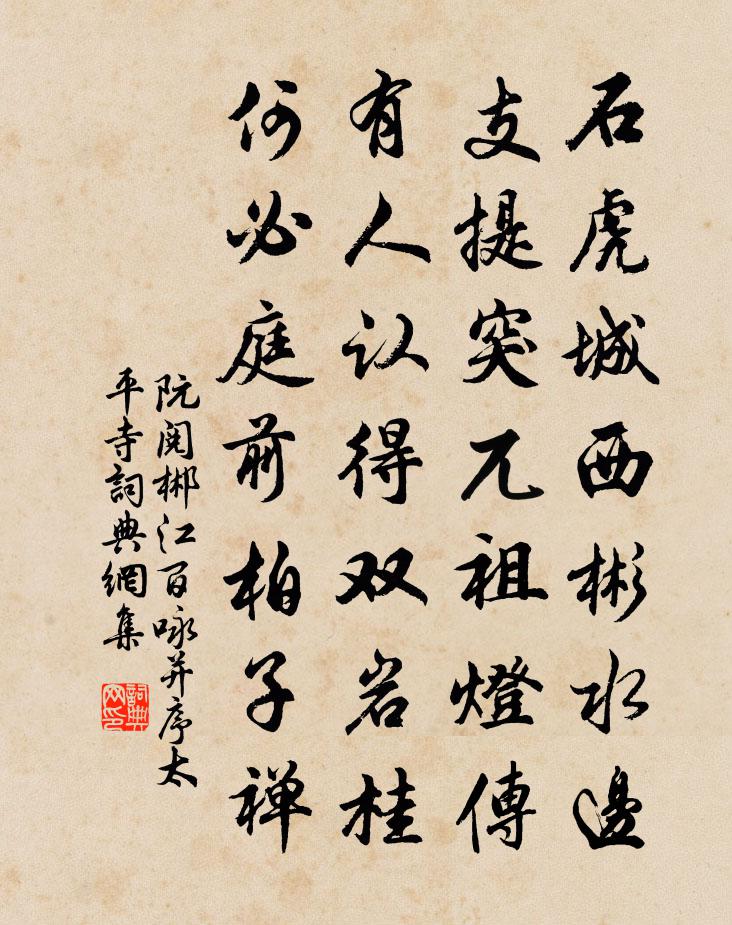 石虎城西彬水邊
支提突兀祖燈傳
有人认得双岩桂
何必庭前柏子禅
阮閱郴江百咏并序太
平寺詞典網集
詞典网印